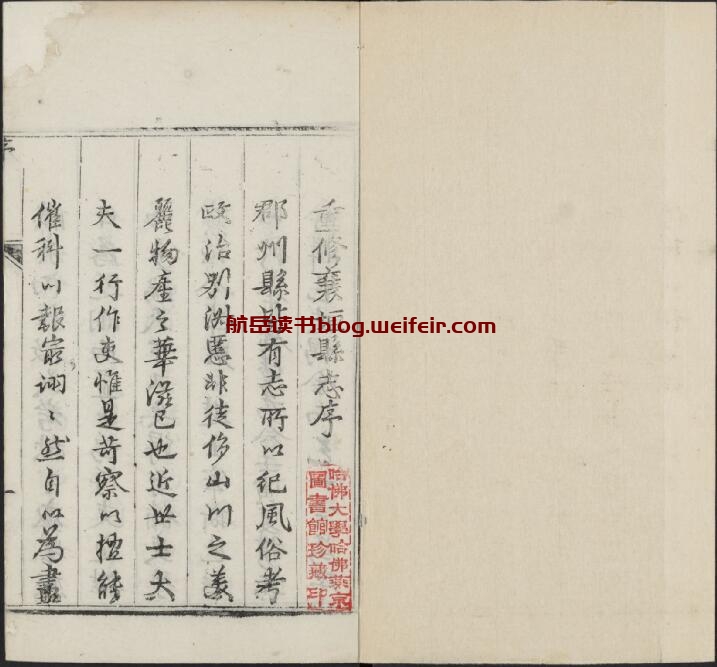 重修襄垣縣志序
郡州縣皆有志所以紀風俗考
政治別淑慝非徒侈山川之美
麗物產之華滋已也近世士大
夫一行作吏惟是苛察以擅能
催科以報最詡〻然自以為盡
哈佛大學哈佛燕京
圖書館珍藏印
航岳读书blog.weifeir.com